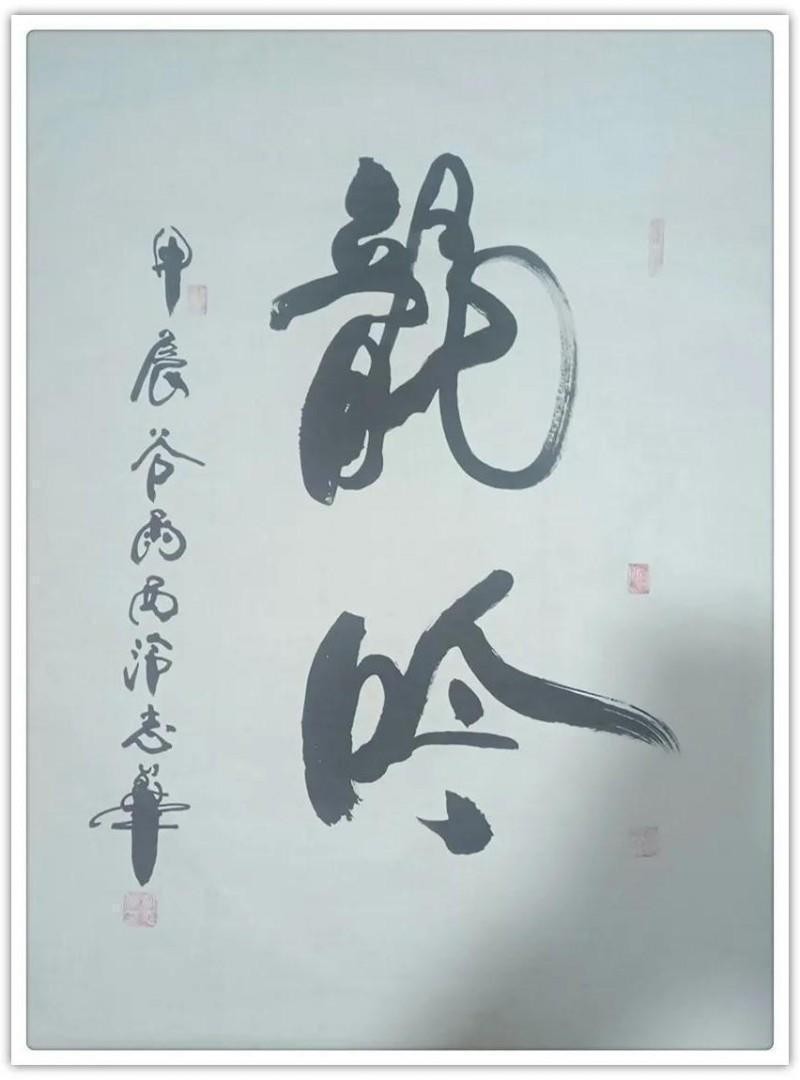 龍吟
甲辰谷雨西泠志華